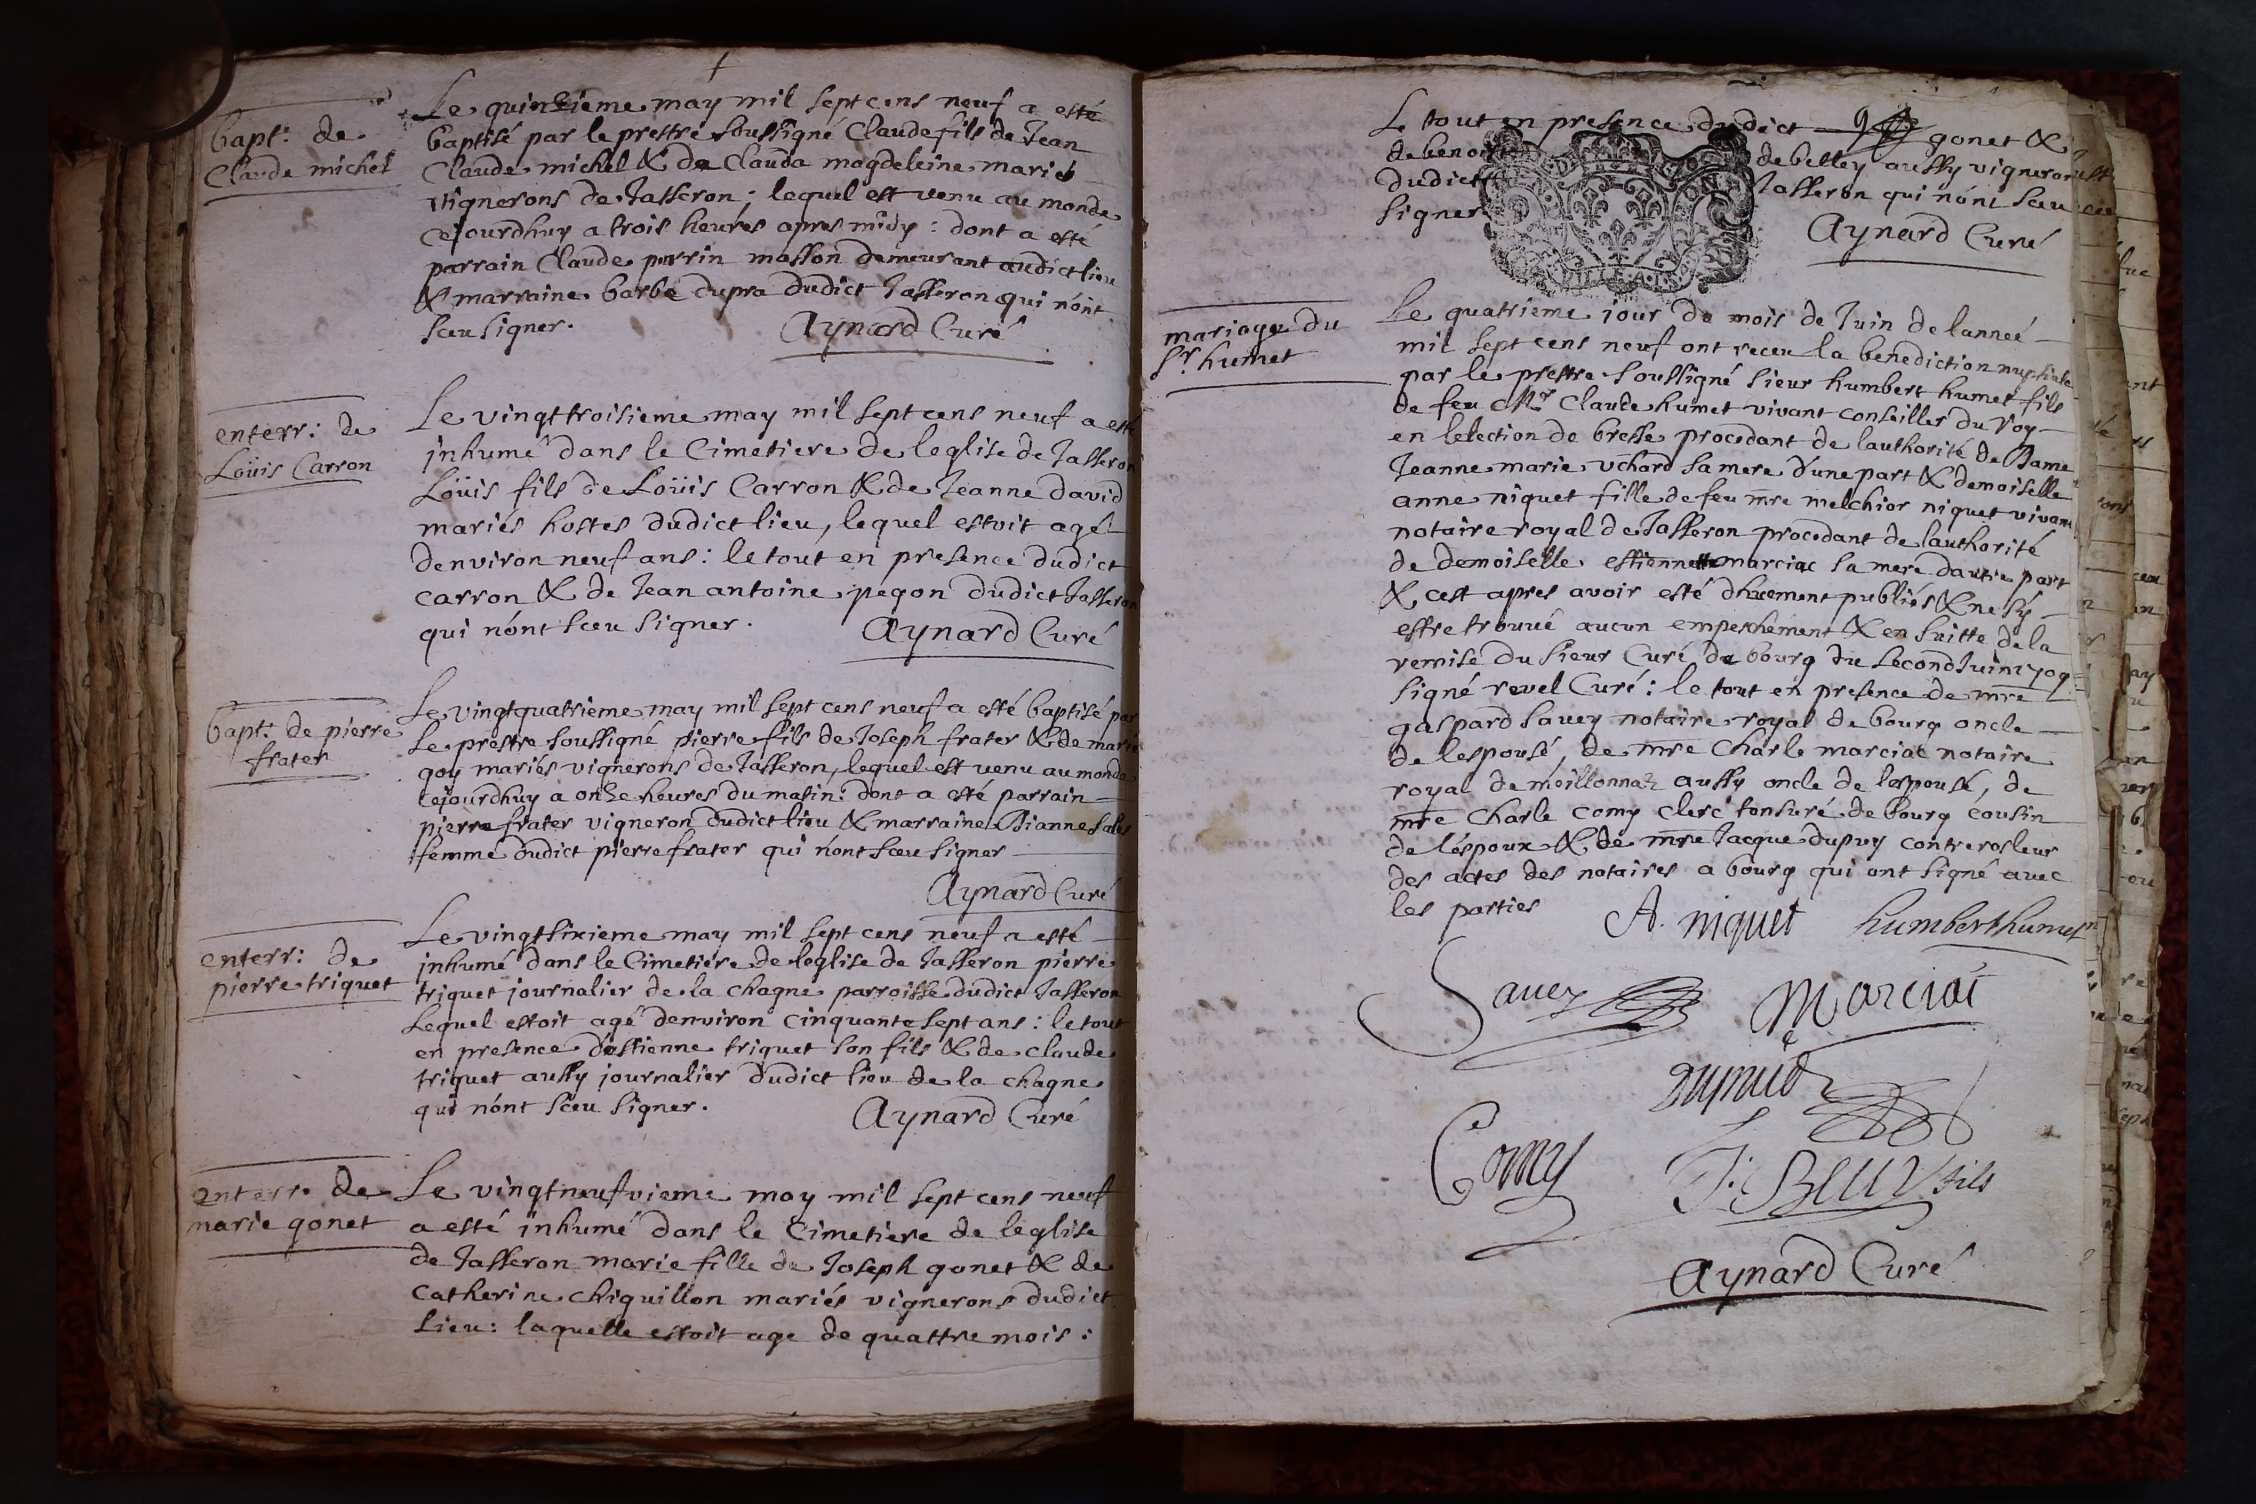 bapt: de
Claude michel
Le quinzieme may mil sept cens neuf a esté
baptisé par le prestre soussigné Claude fils de Jean
Claude michel & de Clauda magdeleine mariés
vignerons de Jasseron; lequel est venu au monde
cejourdhuy a trois heures apres midy: dont a esté
parrain Claude perrin masson demeurant audict lieu
& marraine barbe dupra dudict Jasseron qui nónt
sceu signer. Aynard Curé
enterr: de
Loüis Carron
Le vingt troisieme may mil sept cens neuf a esté
inhumé dans le Cimetiere de leglise de Jasseron
Loüis fils de Loüis Carron & de Jeanne david
mariés hostes dudict lieu, lequel estoit agé
denviron neuf ans: le tout en presence dudict
carron & de Jean antoine pegon dudict Jasseron
qui nónt sceu signer. Aynard Curé
bapt: de pierre
frater
Le vingtquatrieme may mil sept cens neuf a esté baptisé par
Le prestre soussigné pierre fils de Joseph frater & de marie
goy mariés vignerons de Jasseron, lequel est venu au monde
cejourdhuy a onze heures du matin: dont a esté parrain
pierre frater vigneron dudict lieu & marraine Dianne sales
femme dudict pierre frater qui nónt sceu signer
Aynard Curé
enterr: de
pierre triquet
Le vingtsixieme may mil sept cens neuf a esté
inhumé dans le Cimetiére de leglise de Jasseron pierre
triquet journalier de la chagne parroisse dudict Jasseron
Lequel estoit agé denviron cinquante sept ans: le tout
en presence destienne triquet son fils & de claude
triquet aussy journalier dudict lieu de la chagne
qui nónt sceu signer. Aynard Curé
enterr: de
marie gonet
Le vingtneufvieme may mil sept cens neuf
a esté inhumé dans le Cimetiere de leglise
de Jasseron marie fille de Joseph gonet & de
catherine chiquillon mariés vignerons dudict
lieu: laquelle estoit age de quattre mois:
Le tout en presence dudict gonet &
de benoist de belley aussy vigneron
dudict Jasseron qui nónt sceu
signer Aynard Curé
mariage du
Sr. humet
Le quatrieme jour du mois de Juin de lanneé
mil sept cens neuf ont receu la benediction nuptiale
par le prestre soussigné sieur humbert humet fils
de feu Mr Claude humet vivant conseiller du Roy
en lelection de bresse procedant de lauthorité de Dame
Jeanne marie uchard sa mere dune part & demoiselle
anne niquet fille de feu mre melchior niquet vivant
notaire royal de Jasseron procedant de lauthorité
de demoiselle estiennette marciac sa mere dautre part
& cest apres avoir esté dhuement publiés & ne sy
estre trouvé aucun empeschement & en suitte de la
remise du sieur Curé de bourg du second Juin 1709
signé revel Curé: le tout en presence de mre
gaspard savey notaire royal de bourg oncle
de lespousé, de mre Charle marciac notaire
royal de meillonnaz aussy oncle de lespousé, de
mre Charle comy clerc tonsuré de bourg cousin
de léspoux & de mre Jacque dupuy controsleur
des actes des notaires a bourg qui ont signé avec
les parties A. niquet humbert humet
Savey Marciac
Dupuid
Comy fils
Aynard Curé